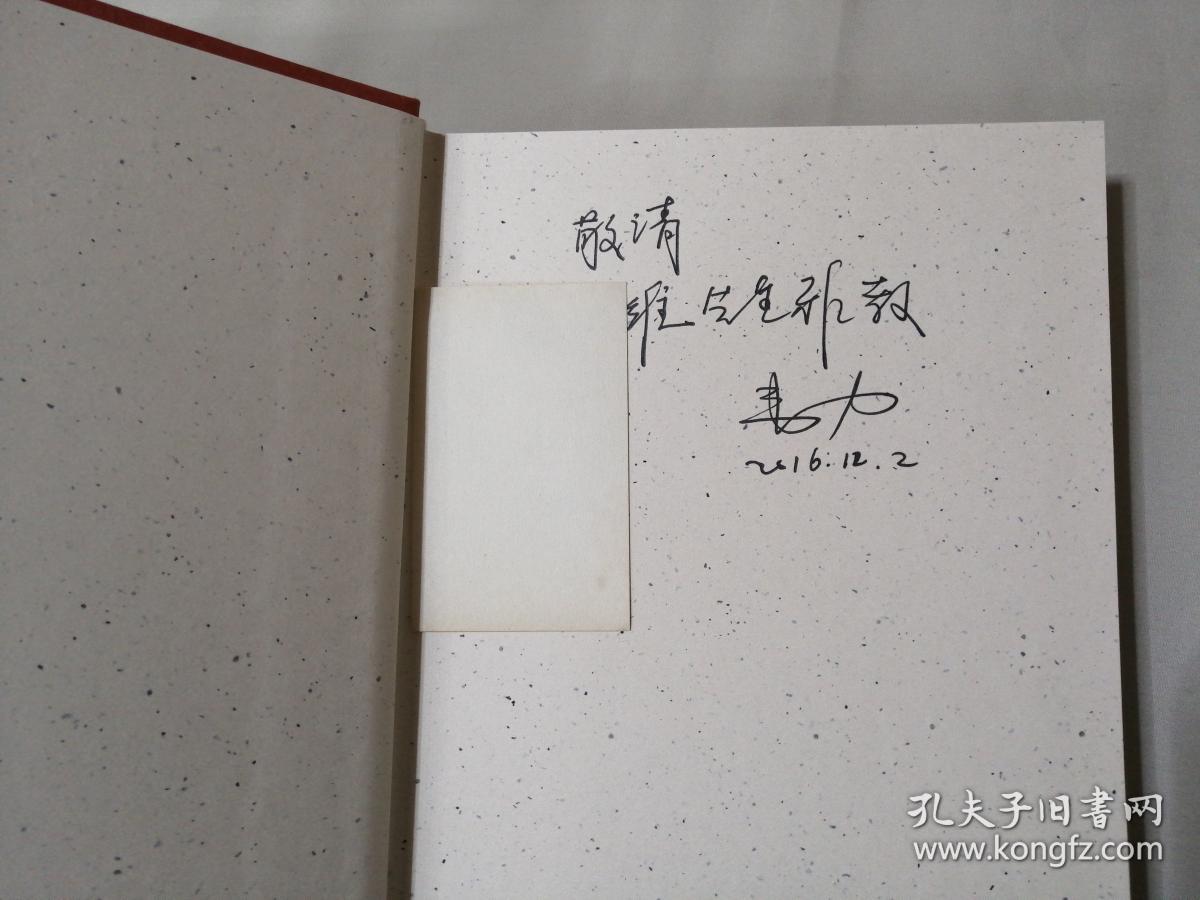 敬请
维先生雅教
韦力
2016.12.2
孔夫子旧書网
www.kongfz.com